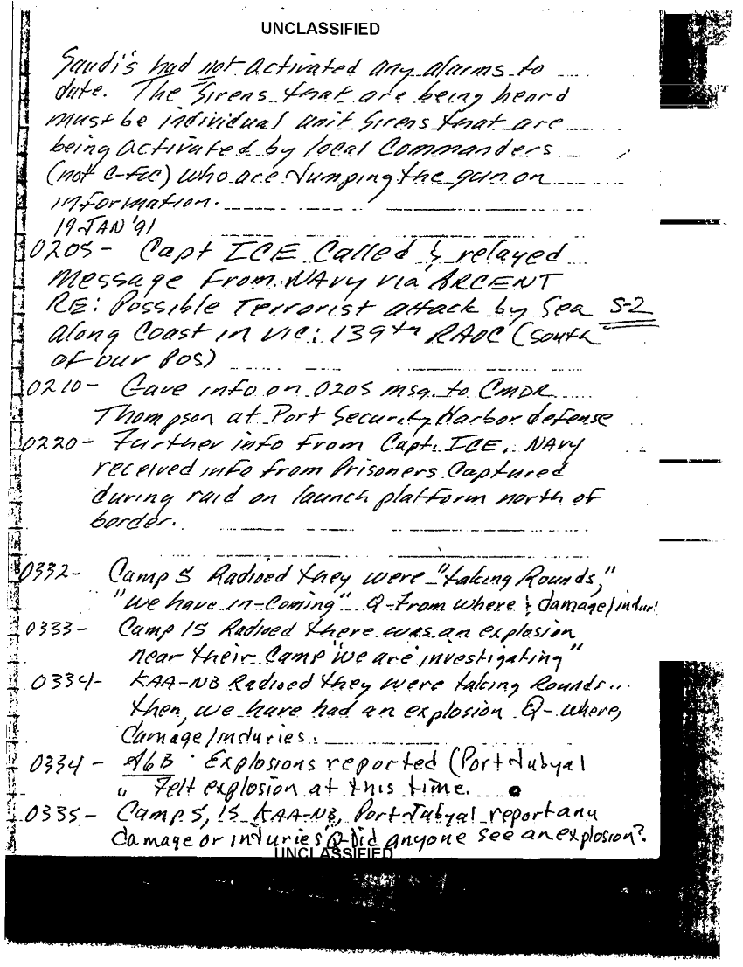 UNCLASSIFIED
Saudi's had not activated any alarms to
date. The Sirens that are being heard
must be individual unit Sirens that are
being activated by local Commanders
(not C-Tec) who are Jumping the gun on
information.
19 JAN '91
0205 - Capt ICE Called & relayed
Message From NAvy via ARCENT
RE: Possible Terrorist attack by Sea S-2
along Coast in vic: 139th RAOC (South
of our Pos)
0210 - Gave info on 0205 msg. to CMDR
Thompson at Port Security Harbor defense
0220 - Further info from Capt. ICE. NAvy
received info from Prisoners Captured
during raid on launch platform north of
border.
0332 - Camp 5 Radioed they were "taking Rounds,"
"We have in-coming" Q-From where & damage/indur!
0333 - Camp 15 Radioed there was an explosion
near their Camp "we are investigating"
0334 - KAA-NB Radioed they were taking Rounds..
then, we have had an explosion Q-where,
damage/induries.
0334 - Explosions reported (Port Jubyal
" Felt explosion at this time.
0335 - Camp 5, 15, KAA-NB, Port Jubyal report any
damage or induries" Q-Did anyone see an explosion?
UNCLASSIFIED